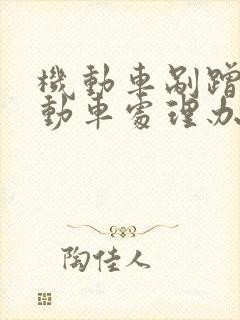 機動車剮蹭
動車處理办
陶佳人